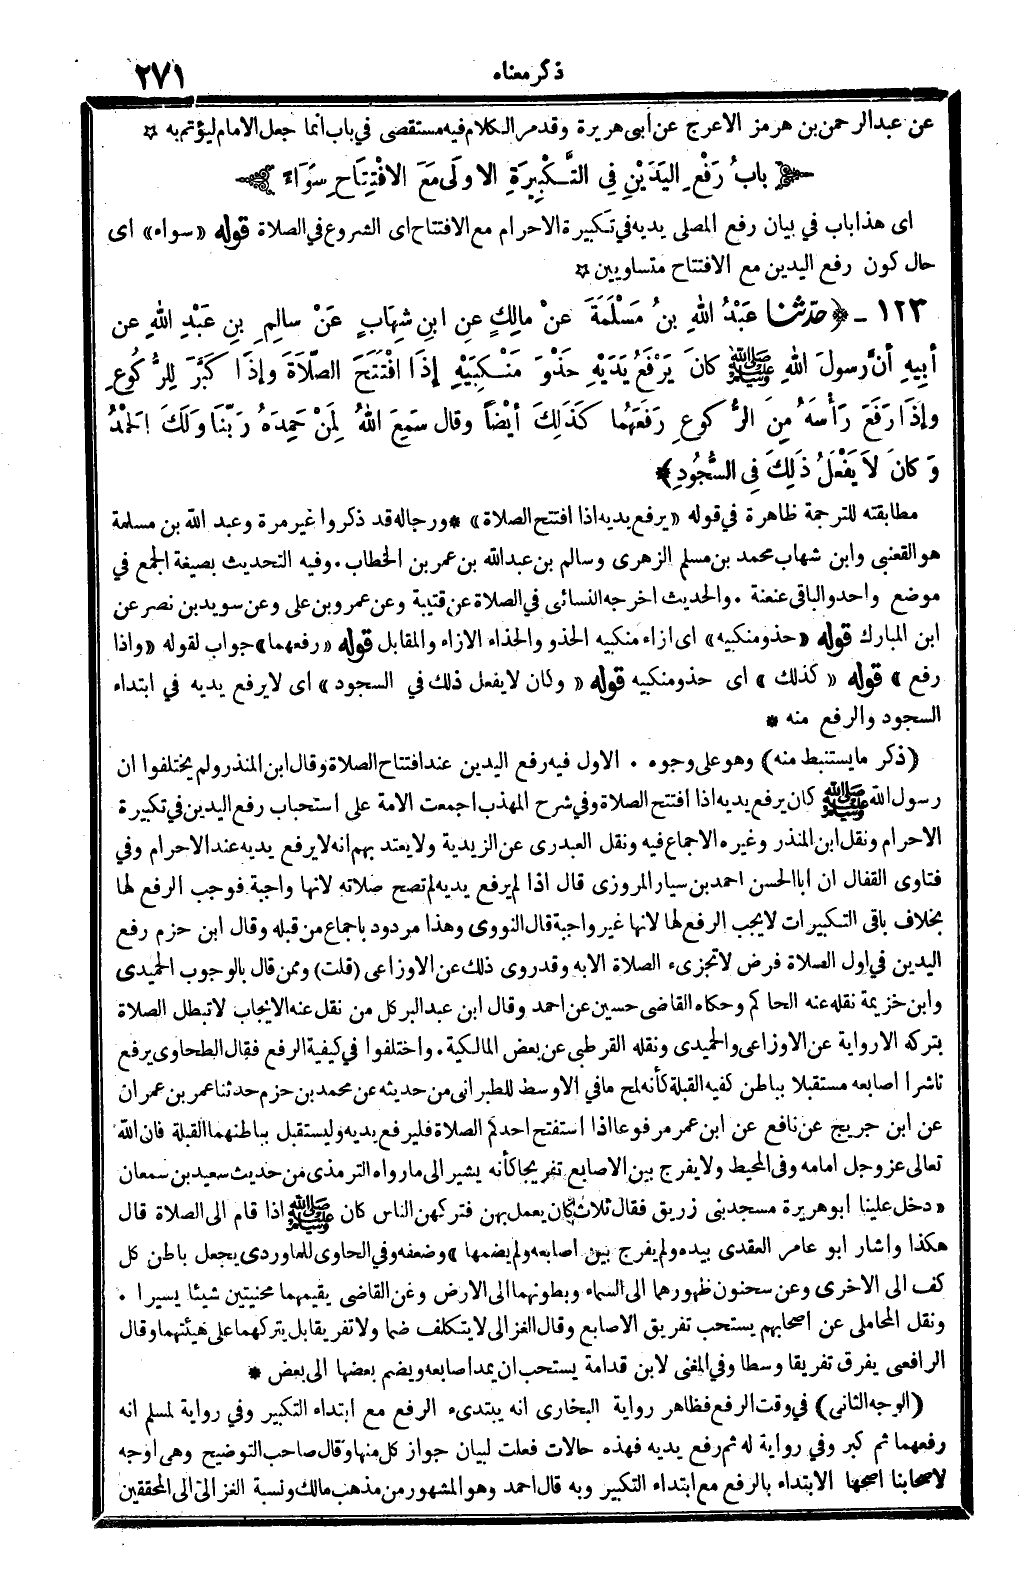 ذكر معناه
٢٧١
عن عبد الرحمن بن هرمز الاعرج عن أبى هريرة وقد مر الكلام فيه مستقصى في باب أنما جعل الامام ليؤتم به ☆
﴿ بابُ رَفْعِ اليَدَيْنِ فِي التَّكْبِيرَةِ الاولَى مَعَ الافْتِتَاحِ سَوَاءً ﴾
اى هذا باب في بيان رفع المصلى يديه في تكبيرة الاحرام مع الافتتاح اى الشروع في الصلاة قوله «سواء» اى
حال كون رفع اليدين مع الافتتاح متساويين ☆
١٢٣ ـ ﴿حدّثنا عَبْدُ اللهِ بنُ مَسْلَمَةَ عنْ مالِكٍ عنِ ابنِ شِهَابٍ عَنْ سالِمِ بنِ عَبْدِ اللهِ عن
أبيهِ أنَّ رسولَ اللهِ ﷺ كانَ يَرْفَعُ يَدَيْهِ حَذْوَ مَنْكِبَيْهِ إذَا افْتَتَحَ الصَّلَاةَ وإذَا كَبَّرَ لِلرُّكُوعِ
وإذَا رَفَعَ رَأسَهُ مِنَ الرُّكوعِ رَفَعَهُما كَذَلِكَ أيْضاً وقال سَمِعَ اللهُ لِمَنْ حَمِدَهُ رَبَّنَا وَلَكَ الحَمْدُ
وَكانَ لاَ يَفْعَلُ ذَلِكَ فِى السُّجُودِ﴾*
مطابقته للترجمة ظاهرة في قوله «يرفع يديه اذا افتتح الصلاة» * ورجاله قد ذكروا غير مرة وعبد الله بن مسلمة
هو القعنبى وابن شهاب محمد بن مسلم الزهرى وسالم بن عبد الله بن عمر بن الخطاب . وفيه التحديث بصيغة الجمع في
موضع واحد والباقى عنعنة . والحديث اخرجه النسائى في الصلاة عن قتيبة وعن عمرو بن على وعن سويد بن نصر عن
ابن المبارك قوله «حذو منكبيه» اى ازاء منكبيه الحذو والحذاء الازاء والمقابل قوله «رفعهما» جواب لقوله «واذا
رفع» قوله «كذلك» اى حذو منكبيه قوله «وكان لا يفعل ذلك في السجود» اى لا يرفع يديه في ابتداء
السجود والرفع منه *
(ذكر ما يستنبط منه) وهو على وجوه . الاول فيه رفع اليدين عند افتتاح الصلاة وقال ابن المنذر ولم يختلفوا ان
رسول الله ﷺ كان يرفع يديه اذا افتتح الصلاة وفي شرح المهذب اجمعت الامة على استحباب رفع اليدين في تكبيرة
الاحرام ونقل ابن المنذر وغيره الاجماع فيه ونقل العبدرى عن الزيدية ولا يعتد بهم انه لا يرفع يديه عند الاحرام وفي
فتاوى القفال ان ابا الحسن احمد بن سيار المروزى قال اذا لم يرفع يديه لم تصح صلاته لانها واجبة فوجب الرفع لها
بخلاف باقى التكبيرات لا يجب الرفع لها لانها غير واجبة قال النووى وهذا مردود باجماع من قبله وقال ابن حزم رفع
اليدين في اول الصلاة فرض لا تجزىء الصلاة الا به وقد روى ذلك عن الاوزاعى (قلت) وممن قال بالوجوب الحميدى
وابن خزيمة نقله عنه الحاكم وحكاه القاضى حسين عن احمد وقال ابن عبد البر كل من نقل عنه الايجاب لا تبطل الصلاة
بتركه الا رواية عن الاوزاعى والحميدى ونقله القرطبى عن بعض المالكية . واختلفوا في كيفية الرفع فقال الطحاوى يرفع
ناشرا اصابعه مستقبلا بباطن كفيه القبلة كأنه لمح ما في الاوسط للطبرانى من حديثه عن محمد بن حزم حدثنا عمر بن عمران
عن ابن جريج عن نافع عن ابن عمر مرفوعا اذا استفتح احدكم الصلاة فليرفع يديه وليستقبل بباطنهما القبلة فان الله
تعالى عز وجل امامه وفى المحيط ولا يفرج بين الاصابع تفريجا كأنه يشير الى ما رواه الترمذى من حديث سعيد بن سمعان
«دخل علينا ابو هريرة مسجد بنى زريق فقال ثلاث كان يعمل بهن فتركهن الناس كان ﷺ اذا قام الى الصلاة قال
هكذا واشار ابو عامر العقدى بيده ولم يفرج بين اصابعه ولم يضمها» وضعفه وفي الحاوى للماوردى يجعل باطن كل
كف الى الاخرى وعن سحنون ظهورهما الى السماء وبطونهما الى الارض وعن القاضى يقيمهما محنيتين شيئا يسيرا .
ونقل المحاملى عن اصحابهم يستحب تفريق الاصابع وقال الغزالى لا يتكلف ضما ولا تفريقا بل يتركهما على هيئتهما وقال
الرافعى يفرق تفريقا وسطا وفي المغنى لابن قدامة يستحب ان يمد اصابعه ويضم بعضها الى بعض *
(الوجه الثانى) في وقت الرفع فظاهر رواية البخارى انه يبتدىء الرفع مع ابتداء التكبير وفي رواية لمسلم انه
رفعهما ثم كبر وفي رواية له ثم رفع يديه فهذه حالات فعلت لبيان جواز كل منها وقال صاحب التوضيح وهى اوجه
لاصحابنا اصحها الابتداء بالرفع مع ابتداء التكبير وبه قال احمد وهو المشهور من مذهب مالك ونسبة الغزالى الى المحققين